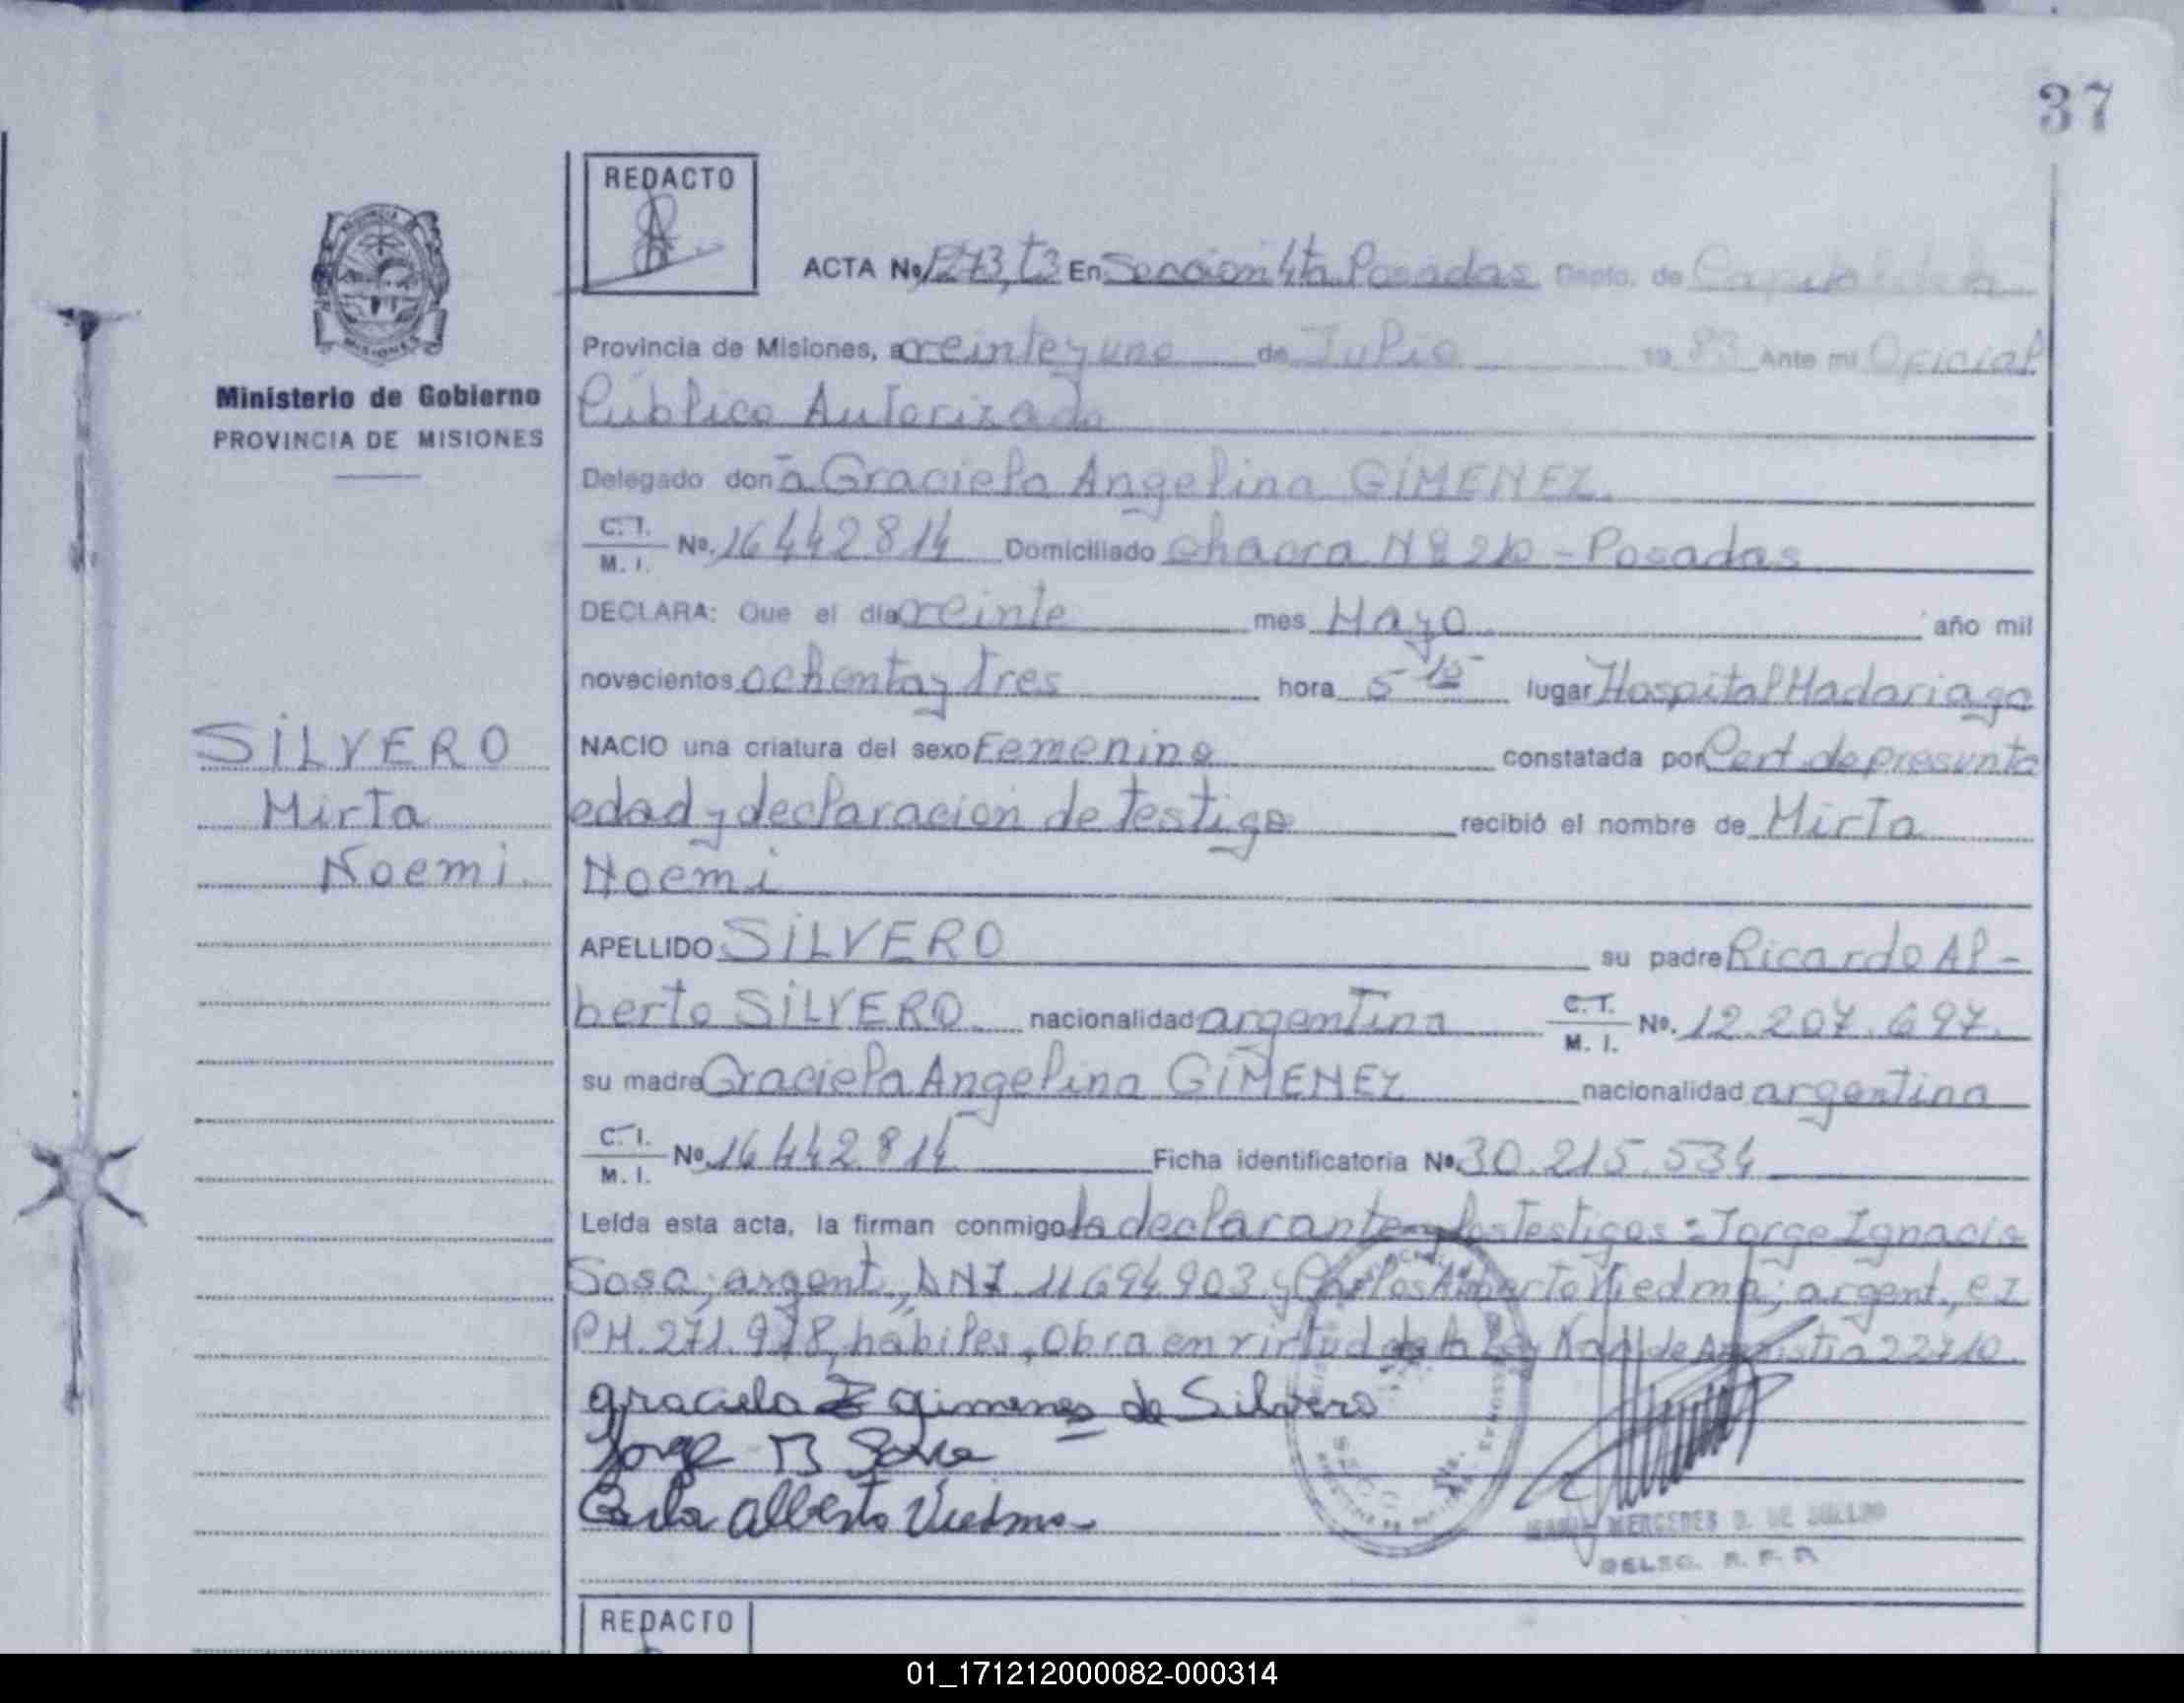 37
REDACTO
ACTA No 1273, t3 En Sección 4ta Posadas Depto. de Capital
Provincia de Misiones, a veinte y uno de Julio 19 83 Ante mi Oficial
Ministerio de Gobierno
Público Autorizado
PROVINCIA DE MISIONES
Delegado don a Graciela Angelina GIMENEZ.
C.I. M.I. No. 16442814 Domiciliado chacra Nº - Posadas
DECLARA: Que el día veinte mes Mayo año mil
novecientos ochenta y tres hora 5 15 lugar Hospital Madariaga
SILVERO
NACIO una criatura del sexo Femenino constatada por Cert. de presunta
Mirta
edad y declaracion de testigo recibió el nombre de Mirta
Noemi.
Noemi
APELLIDO SILVERO su padre Ricardo Al-
berto SILVERO. nacionalidad argentina C.I. M.I. No. 12.207.697.
su madre Graciela Angelina GIMENEZ nacionalidad argentina
C.I. M.I. No. 16442814 Ficha identificatoria No. 30.215.534
Leída esta acta, la firman conmigo la declarante y los Testigos: Jorge Ignacio
Sosa, argent., DNI 11694903 y Carlos Alberto Viedma; argent., CI
PM.271.978, hábiles, Obra en virtud de la Ley Nac. de Amnistia 22710.
Graciela Gimenes de Silvero
Jorge Sosa
Carlos Alberto Viedma
MARIA MERCEDES D. DE
DELEG.
REDACTO
01_171212000082-000314